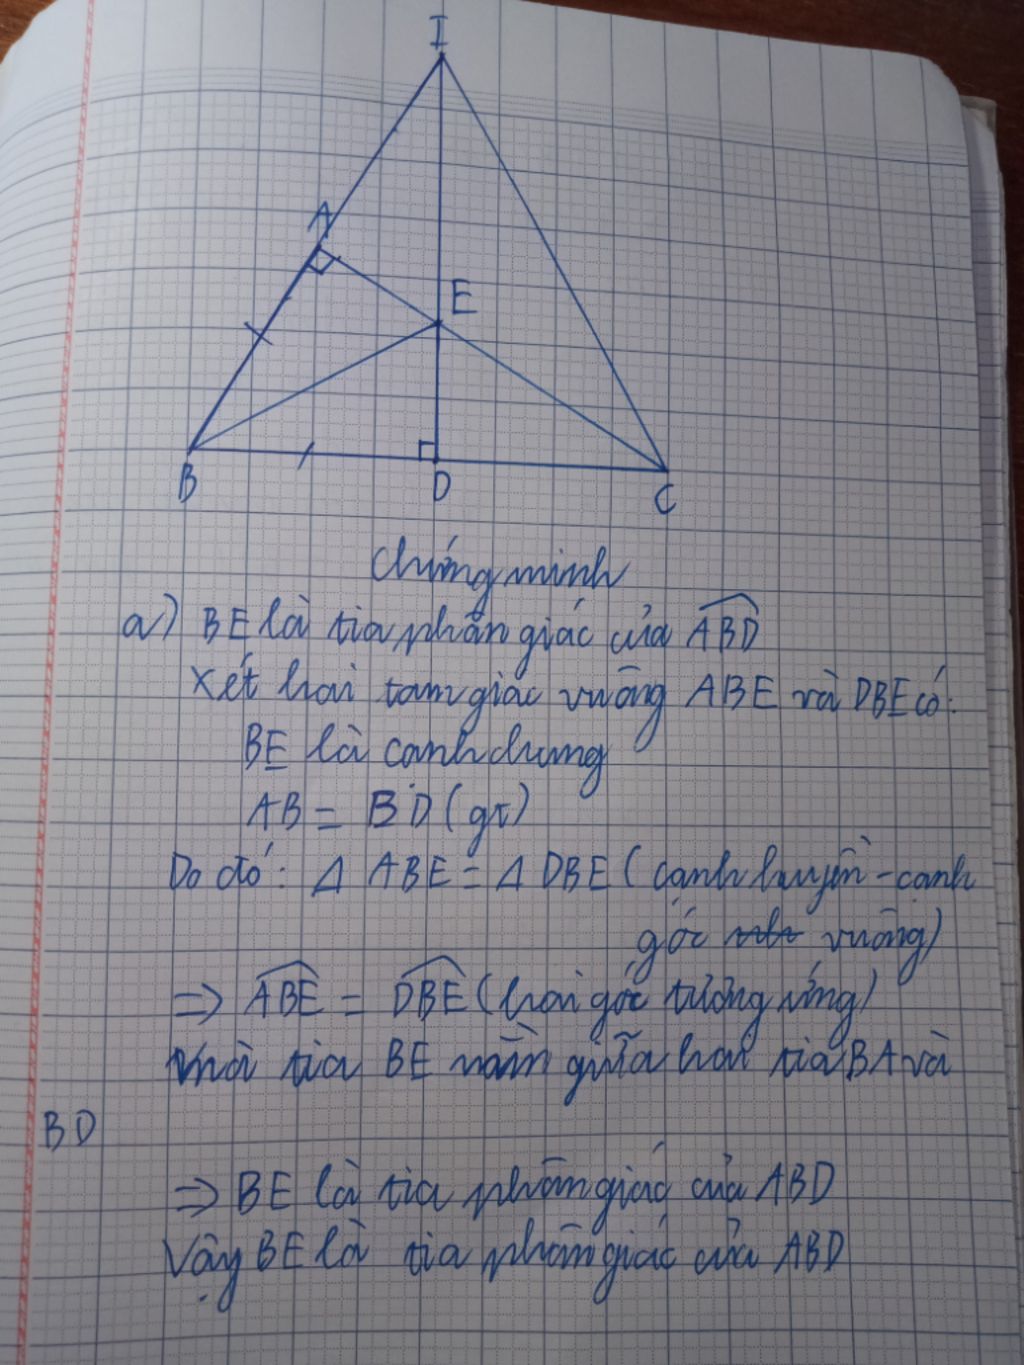 I
A
E
B
D
C
Chứng minh
a) BE là tia phân giác của ABD
Xét hai tam giác vuông ABE và DBE có:
BE là cạnh chung
AB = BD (gt)
Do đó: Δ ABE = Δ DBE (cạnh huyền - cạnh
góc vuông)
=> ABE = DBE (hai góc tương ứng)
mà tia BE nằm giữa hai tia BA và
BD
=> BE là tia phân giác của ABD
Vậy BE là tia phân giác của ABD